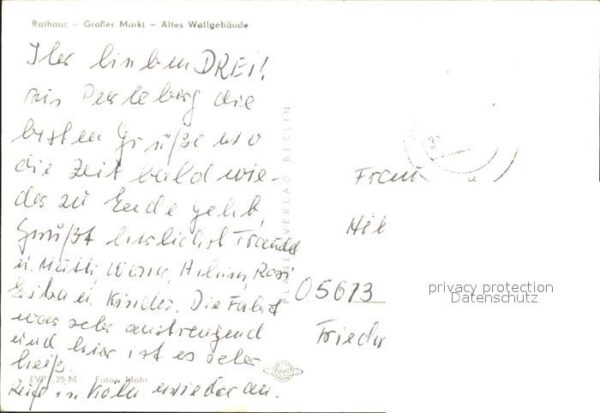 Rathaus – Großer Markt – Altes Wallgebäude
Ihr lieben DREI!
aus Perleberg die
besten Grüße wo
die Zeit bald wie-
der zu Ende geht.
Grüßt herzlichst Traudel
u. Mutti,
u. Kinder. Die Fahrt
war sehr anstrengend
und hier ist es sehr
heiß.
Rufe in Köln wieder an.
VERLAG BERLIN
EVP -,25 M Foto: Mohr
Frau
Hil
05613
Frieder
privacy protection
Datenschutz